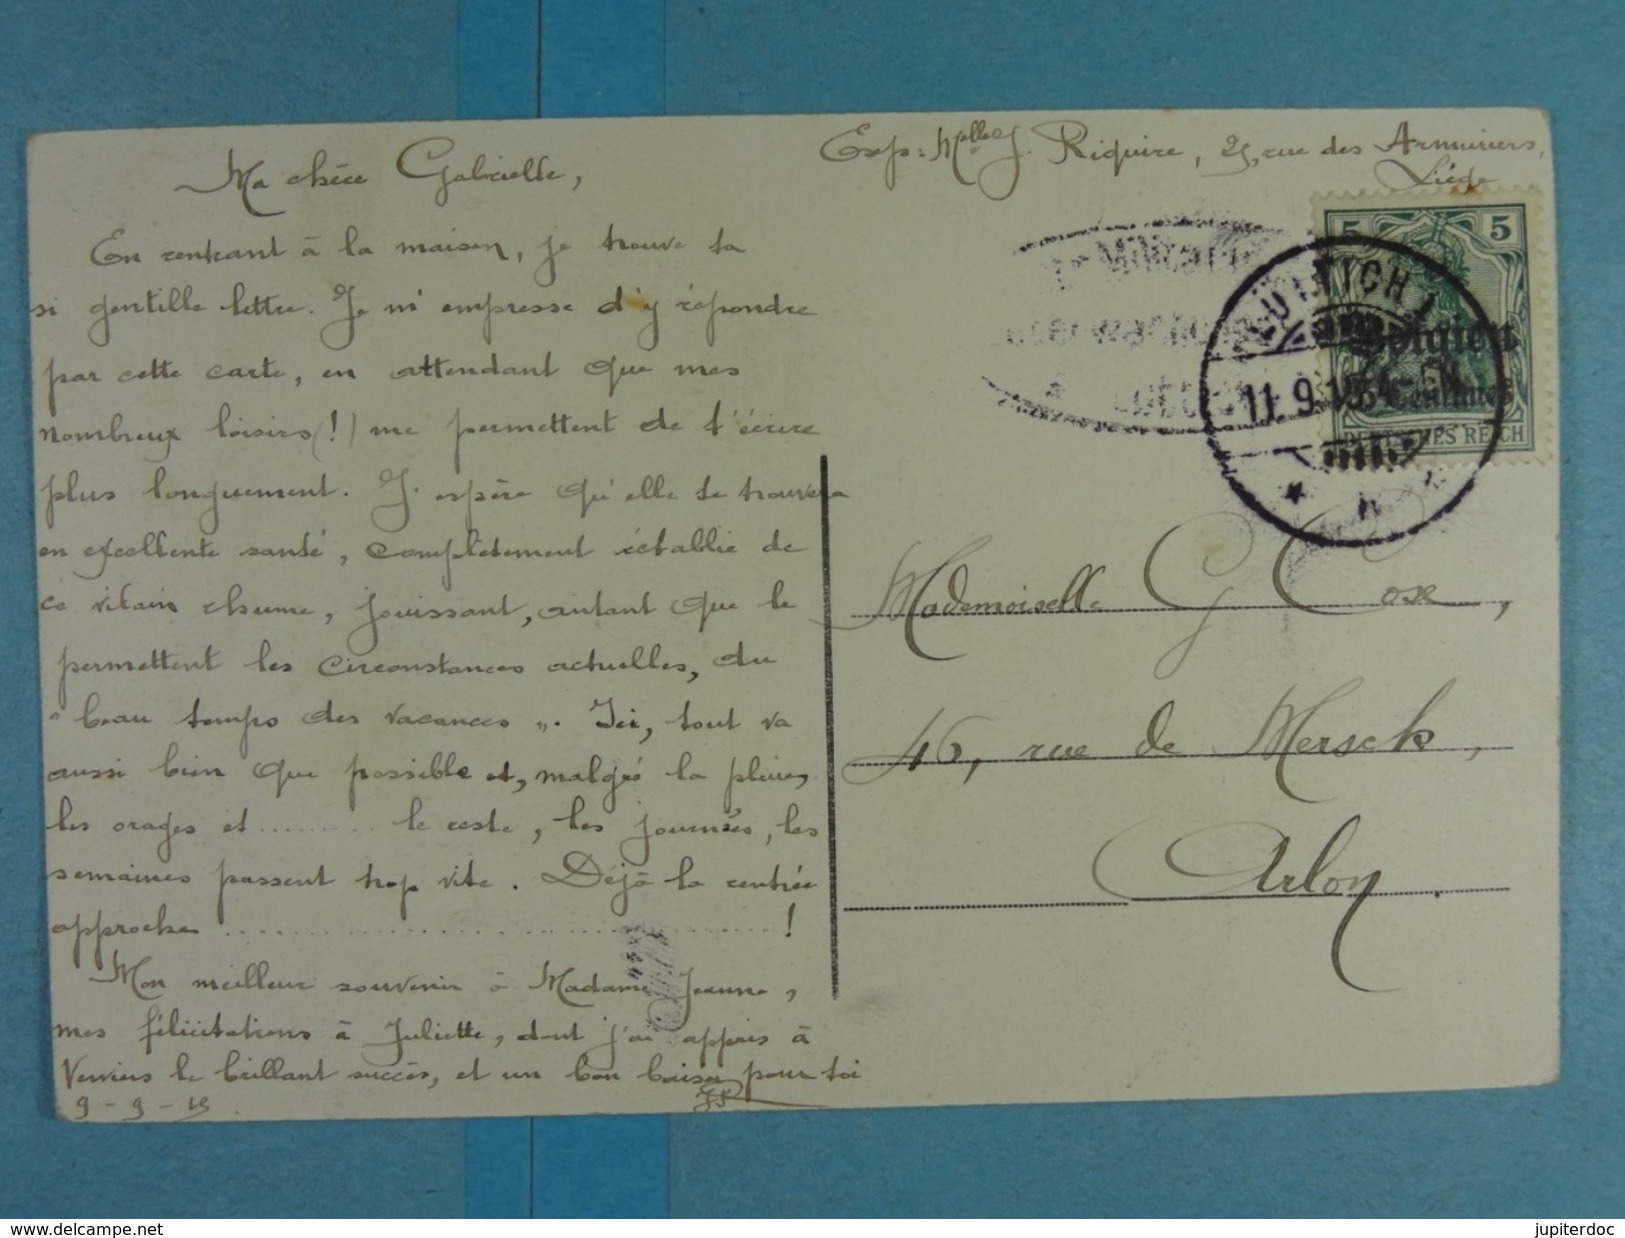 Ma chère Gabrielle,
En rentrant à la maison, je trouve ta
si gentille lettre. Je m'empresse d'y répondre
par cette carte, en attendant que mes
nombreux loisirs (!) me permettent de t'écrire
plus longuement. J'espère qu'elle te trouvera
en excellente santé, complètement rétablie de
ce vilain rhume, jouissant, autant que le
permettent les circonstances actuelles, du
"beau temps des vacances". Ici, tout va
aussi bien que possible et, malgré la pluie,
les orages et ......... le reste, les journées, les
semaines passent trop vite. Déjà la rentrée
approche ........................................ !
Mon meilleur souvenir à Madame Jeanne,
mes félicitations à Juliette, dont j'ai appris à
Verviers le brillant succès, et un bon baiser pour toi
9-9-15.
Exp: Melle J. Riquire, 25, rue des Armuriers,
Liége
Militär
5 5
Belgien
5 Centimes
DEUTSCHES REICH
LÜTTICH 1
11.9.15
Mademoiselle G Cose,
46, rue de Mersch,
Arlon.
www.delcampe.net
jupiterdoc